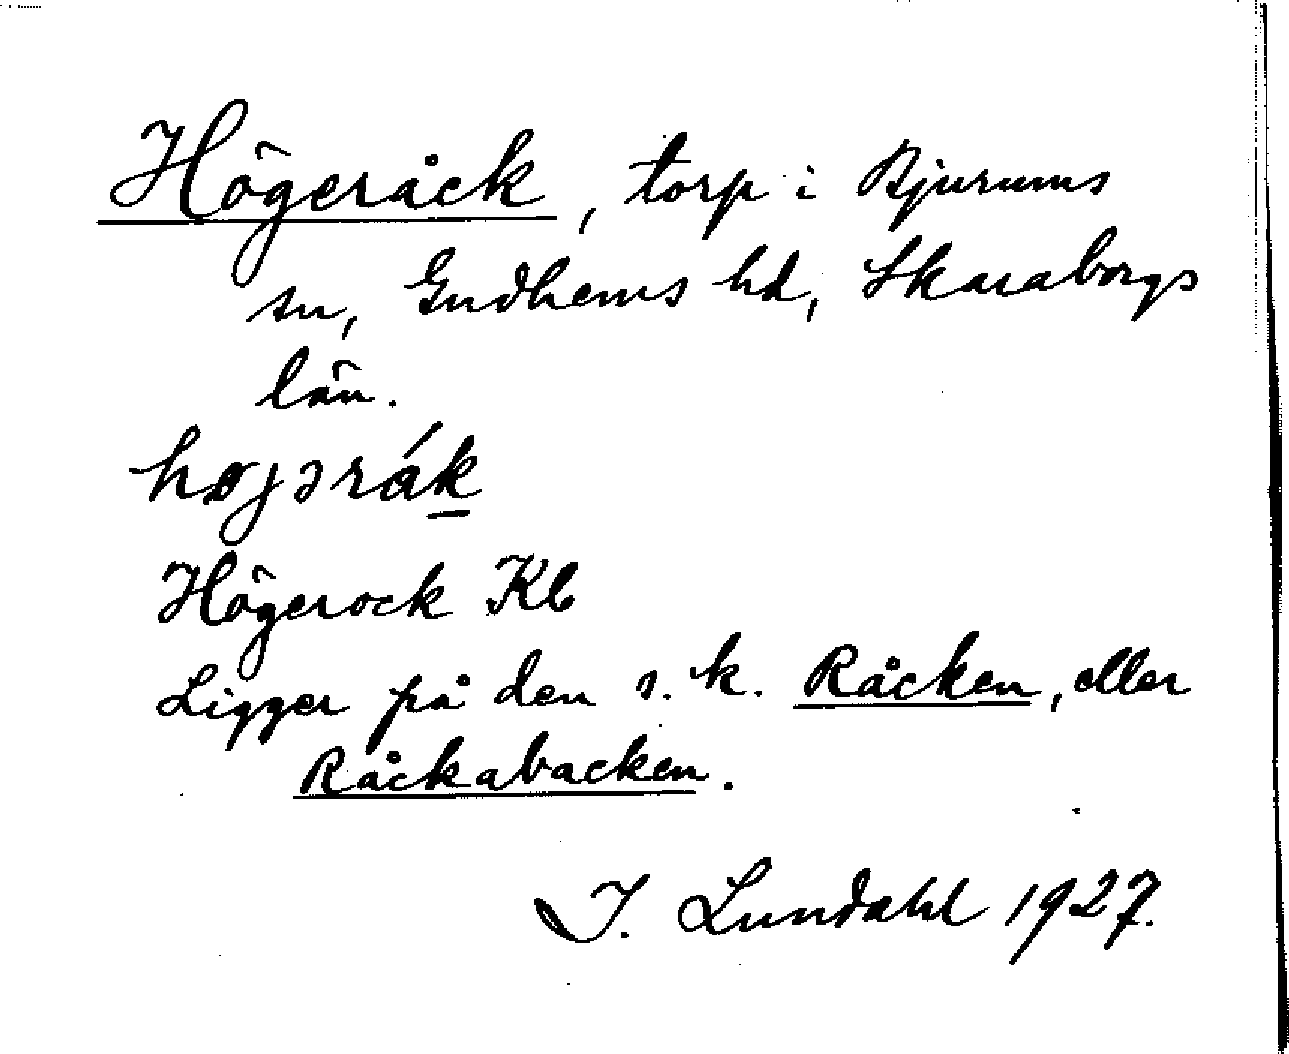 Högeråck, torp i Bjurums
sn, Gudhems hd, Skaraborgs
län.
højərák
Högerock Kb
Ligger på den s.k. Råcken, eller
Råckabacken.
I. Lundahl 1927.